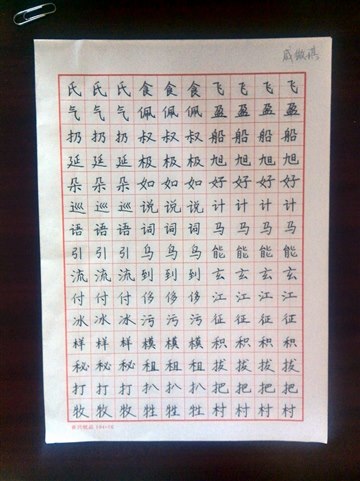 氏氏氏食食食飞飞飞飞
气气气佩佩佩盈盈盈盈
扔扔扔叔叔叔船船船船
延延延极极极旭旭旭旭
朵朵朵如如如好好好好
巡巡巡说说说计计计计
语语语词词词马马马马
引引引鸟鸟鸟能能能能
流流流到到到玄玄玄玄
付付付侈侈侈江江江江
冰冰冰污污污征征征征
样样样模模模积积积积
秘秘秘租租租拔拔拔拔
打打打扒扒扒把把把把
牧牧牧牲牲牲村村村村